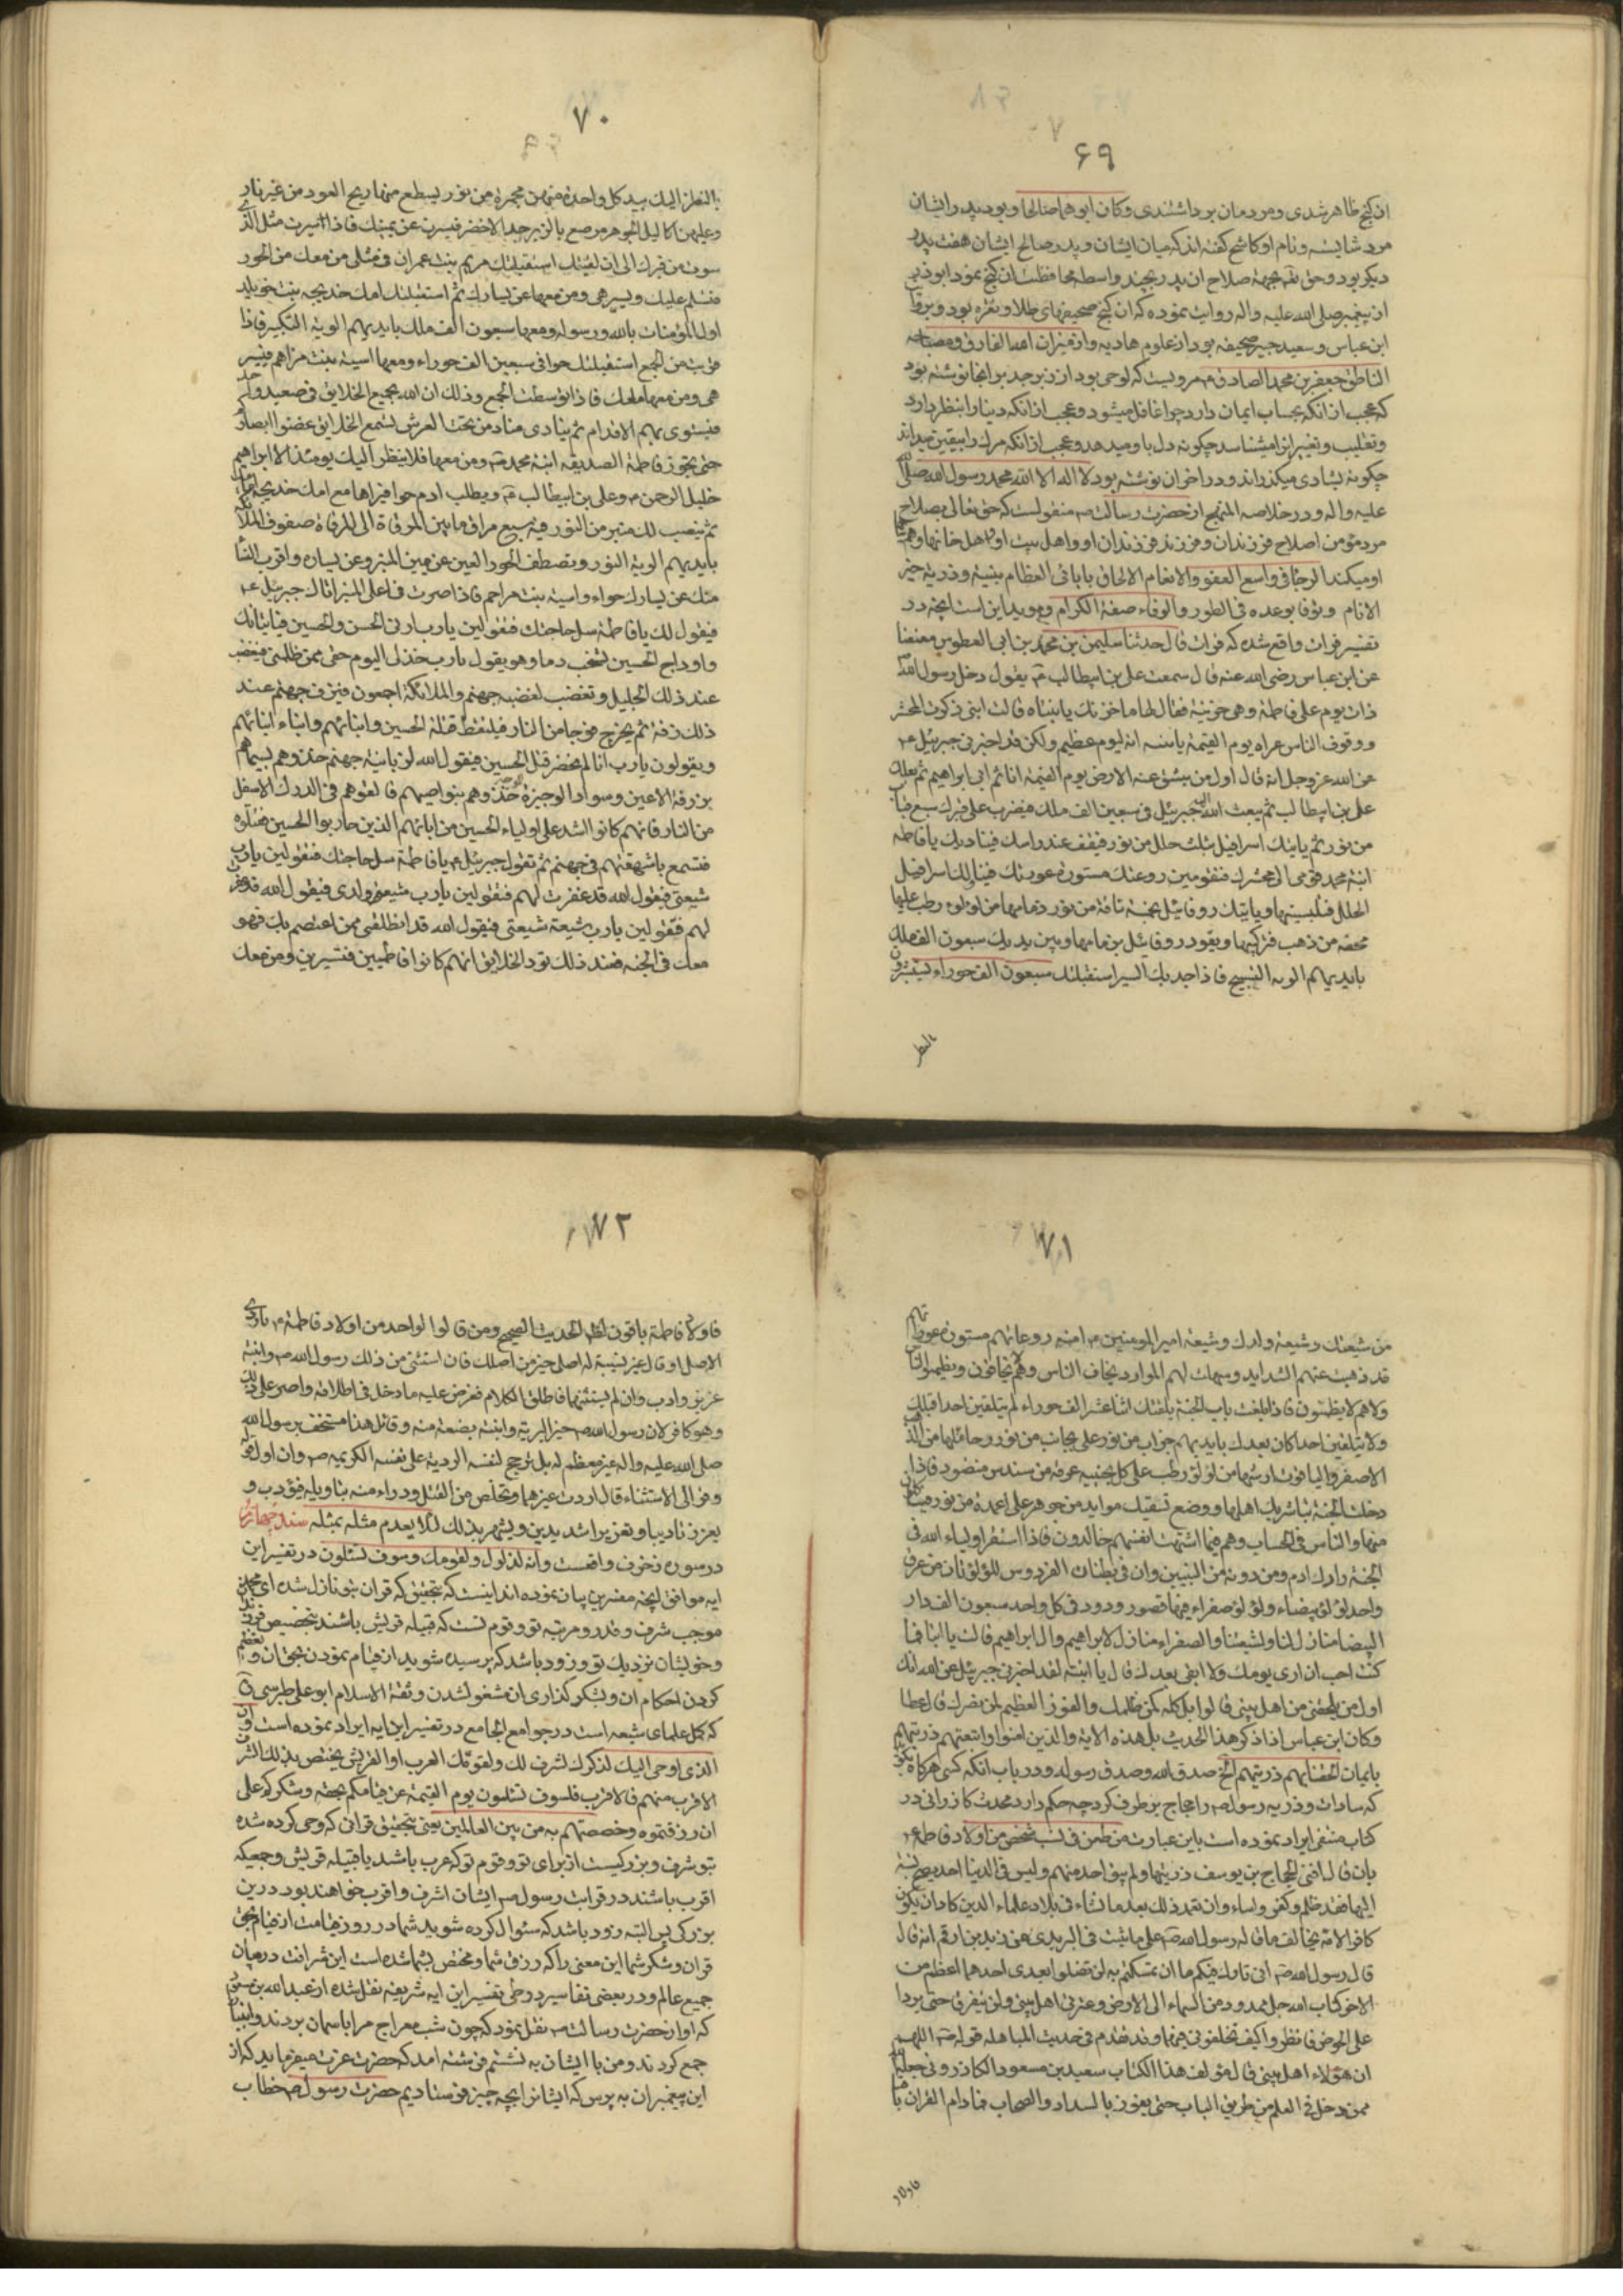 ۶۹
ان کنج ظاهر شدی و مردمان برداشتندی وکان ابوهما صالحا و بودید را ایشان
مرد شایسته و نام او کاشح کفته اند که میان ایشان و پدر صالح ایشان هفت پدر
دیکر بود و حق تعه بجهة صلاح ان پدر بچند واسطه محافظت ان کنج نمود ابوذر
از پیغمبر صلی الله علیه واله روایت نموده که ان کنج صحیفهای طلا و نقره بود و برقا
ابن عباس و سعید جبیر صحیفه بود از علوم هادیه و از میزان الفارق و مصباح
الناطق جعفر بن محمد الصادق مرویست که لوحی بود از زبرجد بر انجا نوشته بود
که عجب از انکه بحساب ایمان دارد چرا غافل میشود و عجب از انکه دنیا را بنظر دارد
و تقلیب و تغییر انرا میشناسد چکونه دل باو میدهد و عجب از انکه مرک را بیقین میداند
چکونه بشادی میکذراند و در اخر ان نوشته بود لا اله الا الله محمد رسول الله صلی الله
علیه واله و در خلاصه المنهج از حضرت رسالت منقولست که حق تعالی بصلاح
مرد مؤمن اصلاح فرزندان و فرزند فرزندان او و اهل بیت او و اهل خانها و همسا
او میکند الرجا فی واسع العفو و الانعام الالحاق بابائی العظام بنبیه و ذریة خیر
الانام و نوفا بوعده فی الطور و الوفاء صفة الکرام و موید این است انچه در
تفسیر فرات واقع شده که فرات قال حدثنا سلیمن بن محمد بن ابی العطوس معنعنا
عن ابن عباس رضی الله عنه قال سمعت علی بن ابیطالب یقول دخل رسول الله
ذات یوم علی فاطمة وهی حزینة فقال لها ما حزنک یا بنتاه قالت ابتی ذکرت المحشر
و وقوف الناس عراة یوم القیمة یا بنیه انه لیوم عظیم ولکن قد اخبرنی جبرئیل
عن الله عز وجل انه قال اول من ینشق عنه الارض یوم القیمة انا ثم ابی ابراهیم ثم بعلک
علی بن ابیطالب ثم یبعث الله جبرئیل فی سبعین الف ملک فیضرب علی قبرک سبع قباب
من نور ثم یاتیک اسرافیل بثلث حلل من نور فیقف عند راسک فینادیک یا فاطمة
ابنة محمد قومی الی محشرک فتقومین روعتک مستورة عورتک فیناولک اسرافیل
الحلل فتلبسینها ویاتیک روفائیل بنجیبة من نور زمامها من لؤلوء رطب علیها
محفة من ذهب فترکبینها ویقود روفائیل بزمامها وبین یدیک سبعون الف ملک
بایدیهم الویة التسبیح فاذا جد بک السیر استقبلتک سبعون الف حوراء یستبشرون
بالنظر
۷۰
بالنظر الیک بید کل واحدة منهن مجمرة من نور یسطع منها ریح العود من غیر نار
وعلیهن اکالیل الجوهر مرصع بالزبرجد الاخضر فیسرن عن یمینک فاذا سرت مثل الذی
سرت من قبرک الی ان لقیتک استقبلتک مریم بنت عمران فی مثل من معک من الحور
فتسلم علیک وتسیر هی ومن معها عن یسارک ثم استقبلتک امک خدیجة بنت خویلد
اول المؤمنات بالله ورسوله ومعها سبعون الف ملک بایدیهم الویة التکبیر فاذا
قربت من الجمع استقبلتک حوا فی سبعین الف حوراء ومعها اسیة بنت مزاحم فتسیر
هی ومن معها معک فاذا توسطت الجمع وذلک ان الله یجمع الخلایق فی صعید واحد
فیستوی بهم الاقدام ثم ینادی مناد من تحت العرش یسمع الخلایق غضوا ابصارکم
حتی تجوز فاطمة الصدیقة ابنة محمد ومن معها فلا ینظر الیک یومئذ الا ابراهیم
خلیل الرحمن وعلی بن ابیطالب ویطلب ادم حوا فیراها مع امک خدیجة امامک
ثم ینصب لک منبر من النور فیه سبع مراق ما بین المرقاة الی المرقاة صفوف الملائکه
بایدیهم الویة النور وتصطف الحور العین عن یمین المنبر وعن یساره واقرب النسا
منک عن یسارک حواء واسیة بنت مزاحم فاذا صرت فی اعلی المنبر اتاک جبرئیل
فیقول لک یا فاطمة سل حاجتک فتقولین یا رب ارنی الحسن والحسین فیاتیانک
واوداج الحسین تشخب دما وهو یقول یا رب خذلی الیوم حقی ممن ظلمنی فیغضب
عند ذلک الجلیل وتغضب لغضبه جهنم والملائکة اجمعون فتزفر جهنم عند
ذلک زفرة ثم یخرج فوجا من النار فیلتقط قتلة الحسین وابنائهم وابناء ابنائهم
ویقولون یا رب انا لم نحضر قتل الحسین فیقول الله لزبانیة جهنم خذوهم بسیماهم
بزرقة الاعین وسواد الوجوه خذوهم بنواصیهم فالقوهم فی الدرک الاسفل
من النار فانهم کانوا اشد علی اولیاء الحسین من ابائهم الذین حاربوا الحسین فقتلوه
فتسمع باشهقتهم فی جهنم ثم تقول جبرئیل یا فاطمة سل حاجتک فتقولین یا رب
شیعتی فیقول الله قد غفرت لهم فتقولین یا رب شیعتی ولدی فیقول الله قد غفرت
لهم فتقولین یا رب شیعة شیعتی فیقول الله قد انطلقی ممن اعتصم بک فهو
معک فی الجنه فعند ذلک تود الخلایق انهم کانوا فاطمیین فتسیرین ومن معک
۷۱
من شیعتک وشیعة ولدک وشیعة امیر المومنین امنه روعاتهم مستورة عوراتهم
قد ذهبت عنهم الشداید وسهلت لهم الموارد یخاف الناس وهم لا یخافون ویظمؤا الناس
وهم لا یظمئون فاذا بلغت باب الجنة یلقتک اثنا عشر الف حوراء لم یتلقین احدا قبلک
ولا یتلقین احدا کان بعدک بایدیهم حراب من نور علی نجائب من نور رحائلها من الذهب
الاصفر والیاقوت ازمتها من لؤلؤ رطب علی کل نجیبة نمرقة من سندس منضود فاذا
دخلت الجنة تباشر بک اهلها ووضع لشیعتک مواید من جوهر علی اعمدة من نور فیاکلون
منها والناس فی الحساب وهم فیما اشتهت انفسهم خالدون فاذا استقر اولیاء الله فی
الجنة زارک ادم ومن دونه من النبیین وان فی بطنان الفردوس للؤلؤتان من عرق
واحد لؤلؤ بیضاء ولؤلؤ صفراء فیها قصور ودور فی کل واحد سبعون الف دار
البیضا منازل لنا ولشیعتنا والصفراء منازل لابراهیم وال ابراهیم قالت یا ابتا فما
کنت احب ان اری یومک ولا ابقی بعدک قال یا ابنتی لقد اخبرنی جبرئیل عن الله انک
اول من یلحقنی من اهل بیتی فالویل کله لمن ظلمک والفوز العظیم لمن نصرک قال عطا
وکان ابن عباس اذا ذکر هذا الحدیث تلا هذه الایة والذین امنوا واتبعتهم ذریتهم
بایمان الحقنا بهم ذریتهم الخ صدق الله وصدق رسوله و در باب انکه کسی هرکاه بکوید
که سادات و ذریه رسول را حجاج برطرف کرد چه حکم دارد محدث کازرانی در
کتاب منتقی ایراد نموده است باین عبارت من طعن فی نسب شخص من اولاد فاطمه
بان قال افنی الحجاج بن یوسف ذریتها ولم یبق احد منهم ولیس فی الدنیا احد یصح نسبه
الیها فقد ظلم وکفر واساء وان تعمد ذلک بعد ما نشاء فی بلاد علماء الدین کاد ان یکون
کافرا لانه یخالف ما قاله رسول الله علی ما ثبت فی الترمذی عن زید بن ارقم انه قال
قال رسول الله انی تارک فیکم ما ان تمسکتم به لن تضلوا بعدی احدهما اعظم من
الاخر کتاب الله حبل ممدود من السماء الی الارض وعترتی اهل بیتی ولن یتفرقا حتی یردا
علی الحوض فانظروا کیف تخلفونی فیهما وقد تقدم فی حدیث المباهله قوله اللهم
ان هؤلاء اهل بیتی قال مؤلف هذا الکتاب سعید بن مسعود الکازرونی جعله الله
ممن دخل فی العلم من طریق الباب حتی یفوز بالسداد والصواب فما دام القران باقیا
فاولاد
۷۲
فاولاد فاطمة باقون لظاهر الحدیث الصحیح ومن قالوا لواحد من اولاد فاطمة
الاصل او قال غیر نسیبة له اصلی خیر من اصلک فان استثنی من ذلک رسول الله وابنته
عزر وادب وان لم یستثنهما فاطلق الکلام فعرض علیه ما دخل فی اطلاقه واصر علی ذلک
وهو کافر لان رسول الله خیر البریة وابنته بضعة منه وقائل هذا مستخف برسول الله
صلی الله علیه واله غیر معظم له بل ترجح لنفسه الردیة علی نفسه الکریمه وان اول قوله
وفر الی الاستثناء قال اردت غیرهما وتخلص من القتل ودراء منه بتاویله فیؤدب و
یعزر تادیبا وتعزیرا شدیدین ویشهر بذلک لئلا یعدم مثله بمثله سند چهارم
در سوره زخرف واقعست وانه لذکر لک ولقومک وسوف تسئلون در تفسیر این
ایه موافق انچه مفسرین بیان نموده اند اینست که بتحقیق که قران بتو نازل شده ای محمد
موجب شرف و قدر و مرتبه تو و قوم تست که قبیله قریش باشند بتخصیص
و خویشان نزدیک تو و زود باشد که پرسیده شوید از قیام نمودن بحق ان و تعظیم
کردن احکام ان و بشکر کذاری ان مشغول شدن و ثقة الاسلام ابو علی طبرسی
که کمل علمای شیعه است در جوامع الجامع در تفسیر این ایه ایراد نموده است
الذی اوحی الیک لذکر لک لشرف لک ولقومک العرب او القریش یختص بذلک الشرف
الاقرب منهم فالاقرب فلسوف تسئلون یوم القیمة عن قیامکم بحقه وشکرکم علی
ان رزقتموه وخصصتم به من بین العالمین یعنی بتحقیق قرانی که وحی کرده شده
بتو شرف و بزرکیست از برای تو و قوم تو که عرب باشد یا قبیله قریش و جمعیکه
اقرب باشند در قرابت رسول ایشان اشرف و اقرب خواهند بود درین
بزرکی پس البته زود باشد که سئوال کرده شوید شما در روز قیامت از قیام بحق
قران و شکر شما این معنی را که رزق شما و مختص بشما شده است این شرافت در میان
جمیع عالم و در بعضی تفاسیر در طی تفسیر این ایه شریفه نقل شده از عبدالله بن
که او از حضرت رسالت نقل نمود که چون شب معراج مرا باسمان بردند و انبیا را
جمع کردند و من با ایشان به نشستم فرشته امد که حضرت عزت میفرماید که از
این پیغمبران به پرس که ایشانرا بچه چیز فرستادیم حضرت رسول خطاب